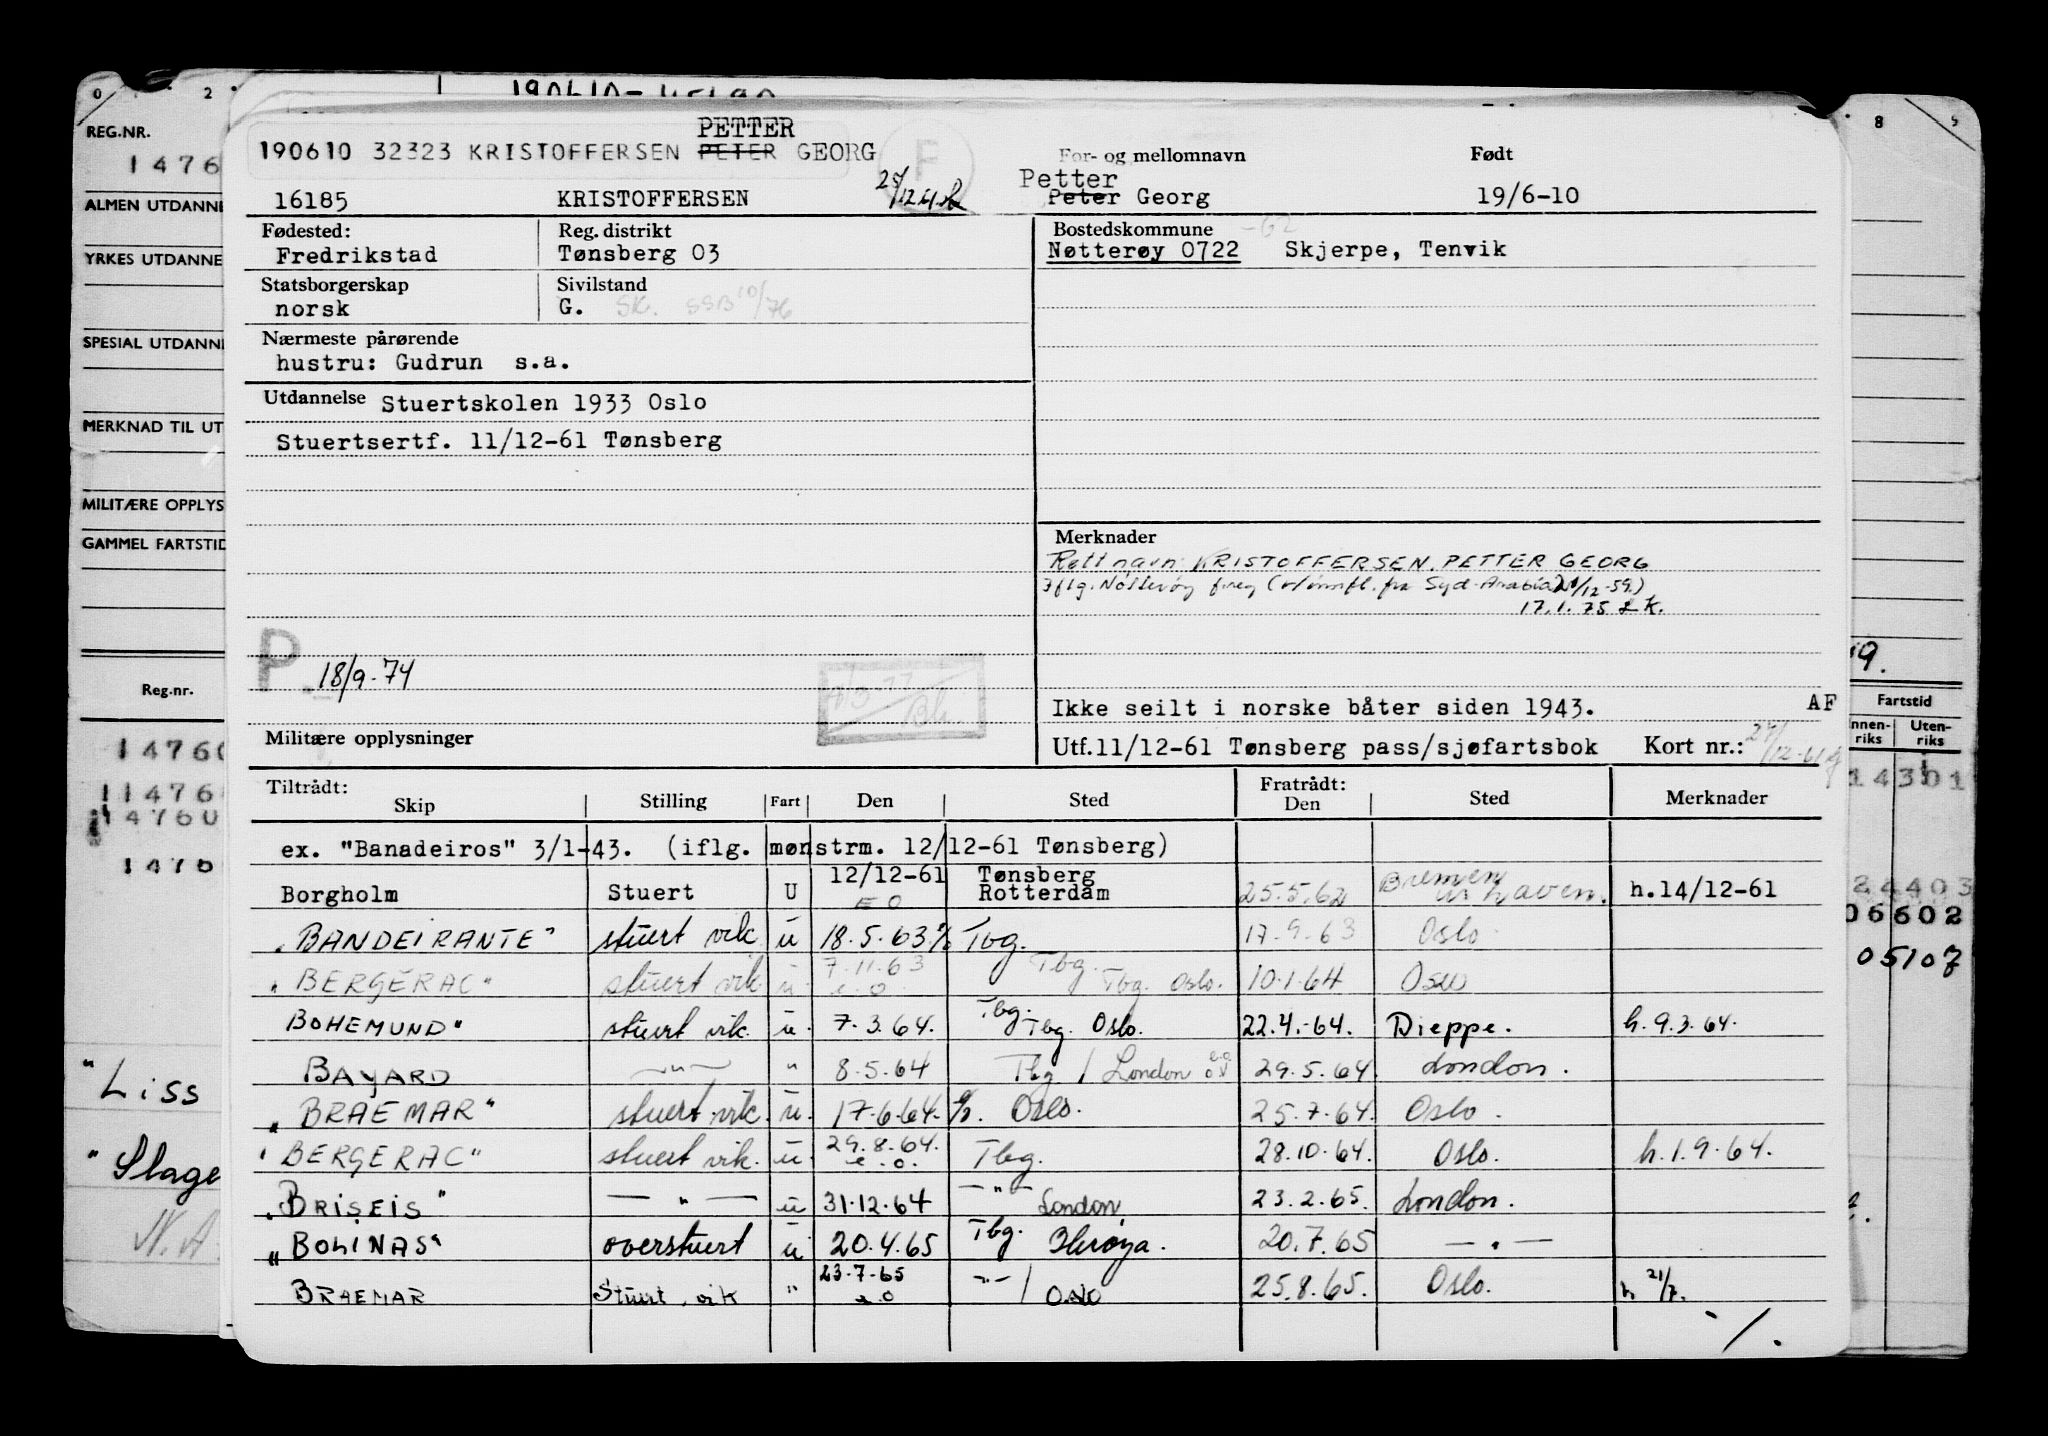 0 2 8 9
190610-45190
REG.NR.
1476
ALMEN UTDANNE
YRKES UTDANNE
SPESIAL UTDANNE
MERKNAD TIL UT
MILITÆRE OPPLYS
GAMMEL FARTSTID
Reg.nr.
14760
114760
14760
1476
"Liss
"Slage
N.A.
PETTER
190610 32323 KRISTOFFERSEN PETER GEORG F
For- og mellomnavn Født
Petter
16185 KRISTOFFERSEN Peter Georg 19/6-10
Fødested: Reg. distrikt
Fredrikstad Tønsberg 03
Statsborgerskap Sivilstand
norsk G. SK. SSB 10/76
Nærmeste pårørende
hustru: Gudrun s.a.
Utdannelse Stuertskolen 1933 Oslo
Stuertsertf. 11/12-61 Tønsberg
P. 18/9-74
Militære opplysninger
Bostedskommune -62
Nøtterøy 0722 Skjerpe, Tenvik
Merknader
Rett navn: KRISTOFFERSEN, PETTER GEORG
Iflg. Nøtterøy freg (v/innfl. fra Syd-Arabia 21/12-59.)
17.1.75 LK.
Ikke seilt i norske båter siden 1943. AF
Utf.11/12-61 Tønsberg pass/sjøfartsbok Kort nr.:
Tiltrådt: Fratrådt:
Skip Stilling Fart Den Sted Den Sted Merknader
ex. "Banadeiros" 3/1-43. (iflg. mønstrm. 12/12-61 Tønsberg)
12/12-61 Tønsberg
Borgholm Stuert U EO Rotterdam 25.5.62 Bremen haven. h.14/12-61
"BANDEIRANTE" stuert vik. u 18.5.63 % Tbg. 17.9.63 Oslo
"BERGERAC" stuert vik u. 7.11.63 e.o. Tbg. Tbg. Oslo. 10.1.64 Oslo
BOHEMUND" stuert vik. u. 7.3.64. Tbg. Tbg. Oslo. 22.4.-64. Dieppe. h.9.3.64.
BAYARD —"— " 8.5.64 Tbg / London 29.5.64. London.
"BRAEMAR" stuert vik. u. 17.6.64. %. Oslo. 25.7.64. Oslo.
"BERGERAC" stuert vik. u. 29.8.64. e.o. Tbg. 28.10.64. Oslo. h.1.9.64.
"BRISEIS" —"— u 31.12.64 —"— London 23.2.65. London.
"BOLINAS" overstuert u 20.4.65 Tbg. Herøya. 20.7.65 —"—
BRAEMAR Stuert. vik " 23.7.65 e.o —"— / Oslo 25.8.65. Oslo. h. 21/7.
%.
19.
Fartstid
nnen-riks Uten-riks
14301
24403
06602
05107